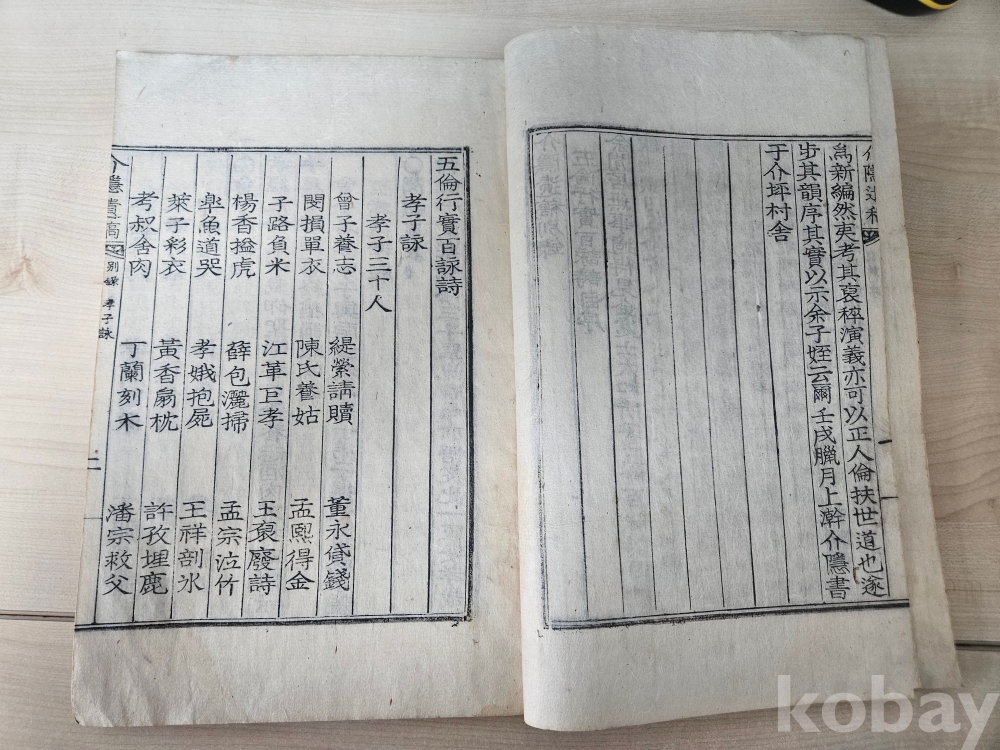 爲新編然更考其裒稡演義亦可以正人倫扶世道也遂
步其韻序其實以示余子姪云爾壬戌臘月上澣介隱書
于介坪村舍
五倫行實百詠詩
孝子詠
孝子三十人
曾子養志 緹縈請贖 董永貸錢
閔損單衣 陳氏養姑 孟熙得金
子路負米 江革巨孝 王裒廢詩
楊香搤虎 薛包灑掃 孟宗泣竹
皐魚道哭 孝娥抱屍 王祥剖氷
萊子彩衣 黃香扇枕 許孜埋鹿
考叔舍肉 丁蘭刻木 潘宗救父
介隱遺稿 別錄 孝子詠 二
kobay